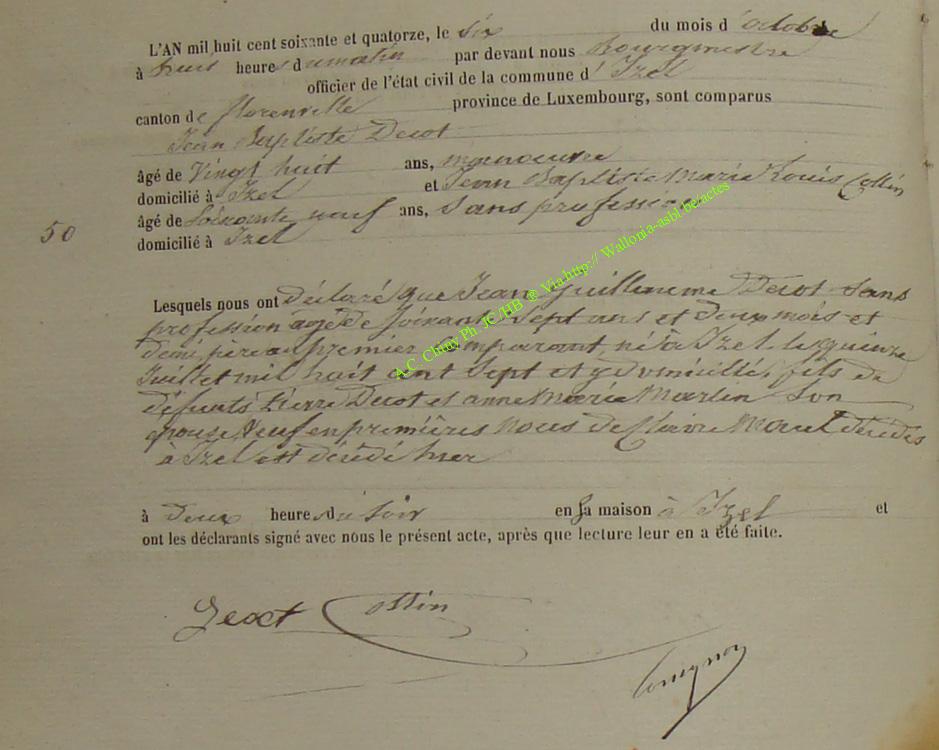 L'AN mil huit cent soixante et quatorze, le six du mois d'octobre
à huit heures du matin par devant nous Bourgmestre
officier de l'état civil de la commune d'Izel
canton de florenville province de Luxembourg, sont comparus
Jean Baptiste Decot
âgé de Vingt huit ans, manoeuvre
domicilié à Izel et Jean Baptiste Marie Louis Collin
âgé de Soixante neuf ans, Sans profession
50
domicilié à Izel
Lesquels nous ont déclaré que Jean Guillaume Decot Sans
profession agé de soixante Sept ans et deux mois et
demi, père au premier comparant, né à Izel le quinze
Juillet mil huit cent Sept et y domicillé, fils de
défunts Pierre Decot et anne Marie Marlin Son
épouse, Veuf en premières Noces de Claire décédés
à Izel est décédé hier
à Deux heures du Soir en sa maison à Izel et
ont les déclarants signé avec nous le présent acte, après que lecture leur en a été faite.
Decot Collin
A.C. Chiny Ph. JC /HB ® Via http:// Wallonia-asbl-be/actes